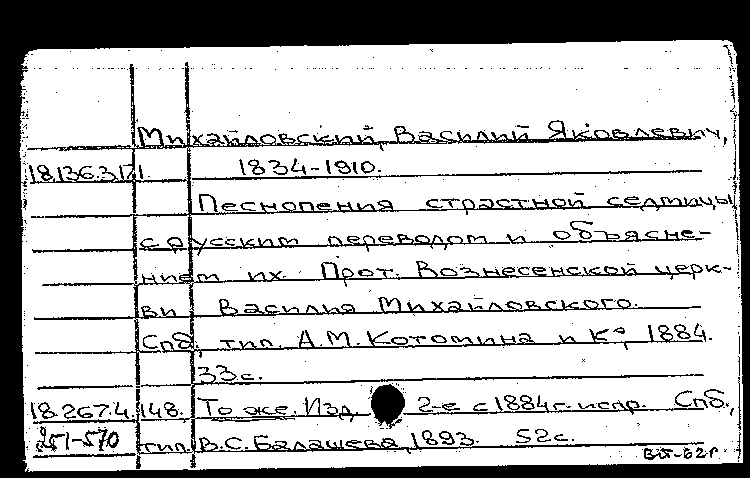 Михайловский, Василий Яковлевич,
18.136.3.171. 1834-1910.
Песнопения страстной седмицы
с русским переводом и объясне-
нием их. Прот. Вознесенской церк-
ви Василия Михайловского.
Спб, тип. А.М. Котомина и К°, 1884.
33с.
18.267.4.148. То же. Изд. 2-е с 1884г. испр. Спб.,
251-570 тип. В.С. Балашева, 1893. 52с.